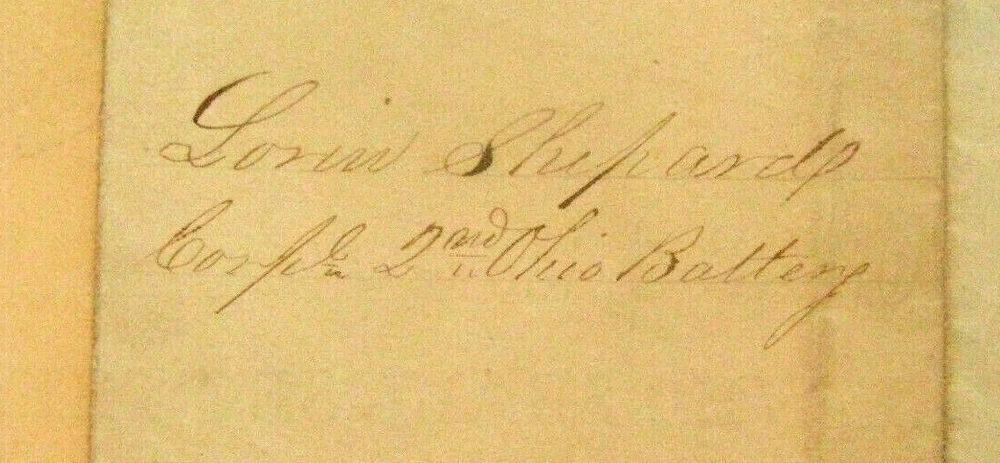 Lorin Shepard
Corpl 2nd Ohio Battery